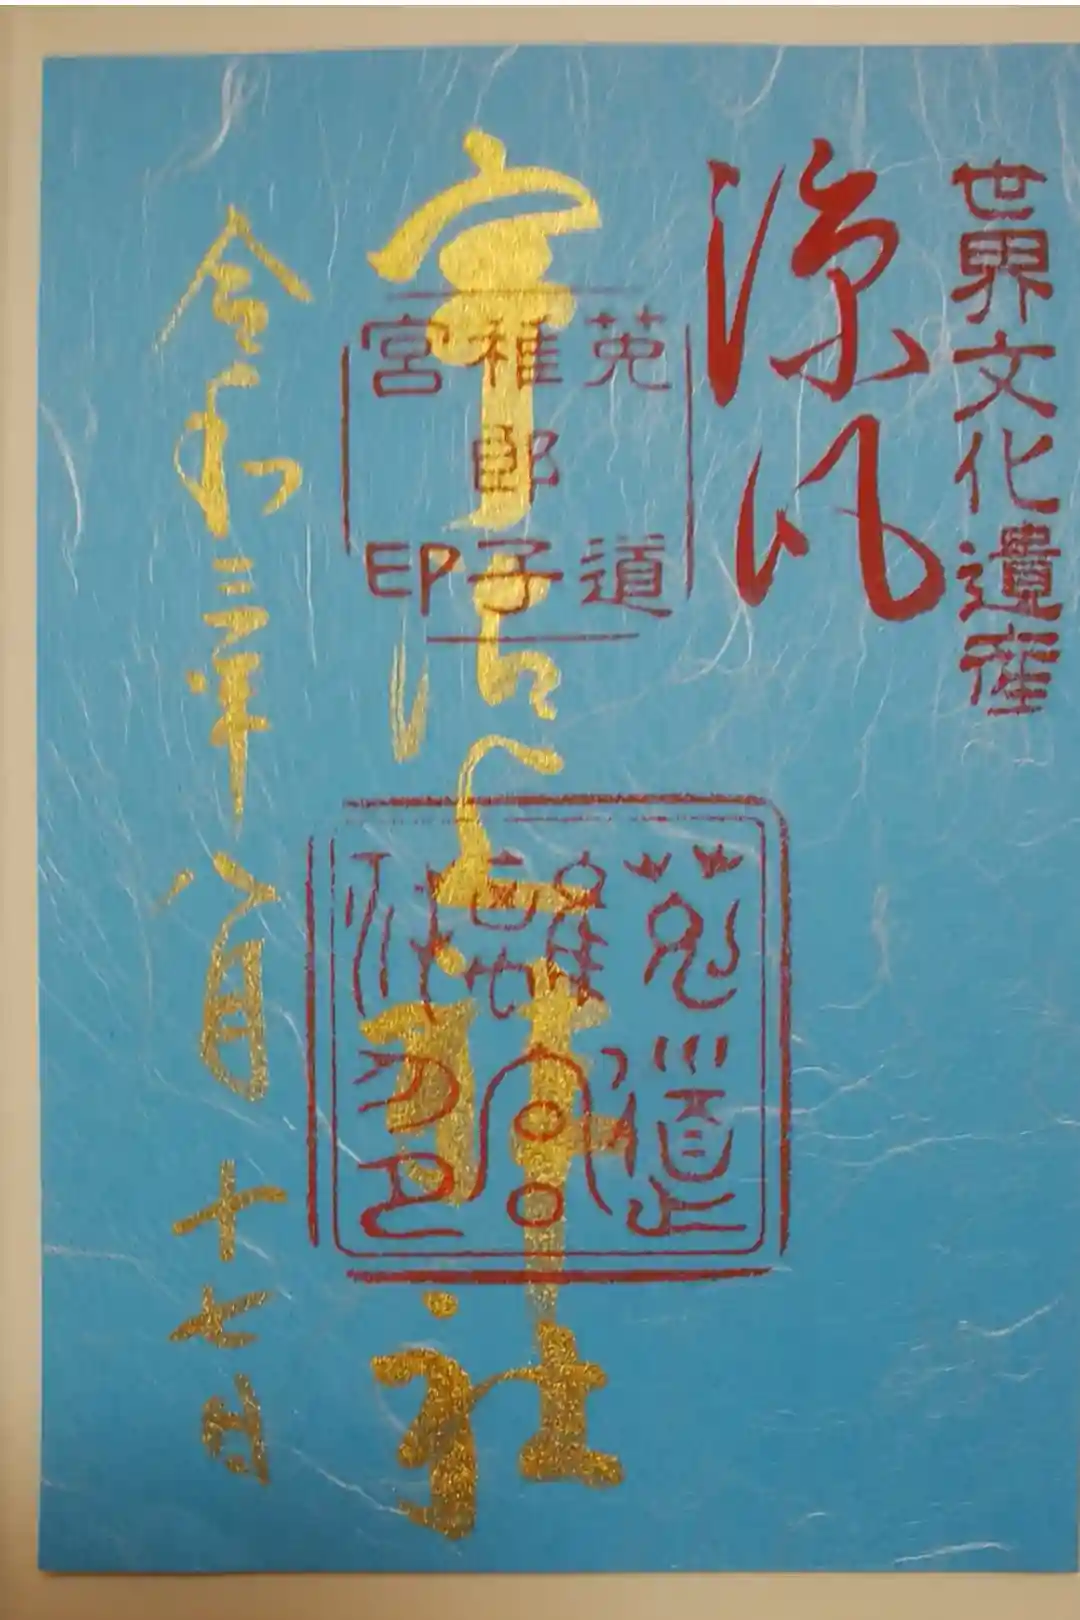 世界文化遺産
涼風
莵道
稚郎子
宮印
宇治上神社
菟道
離宮
印
令和三年八月十七日